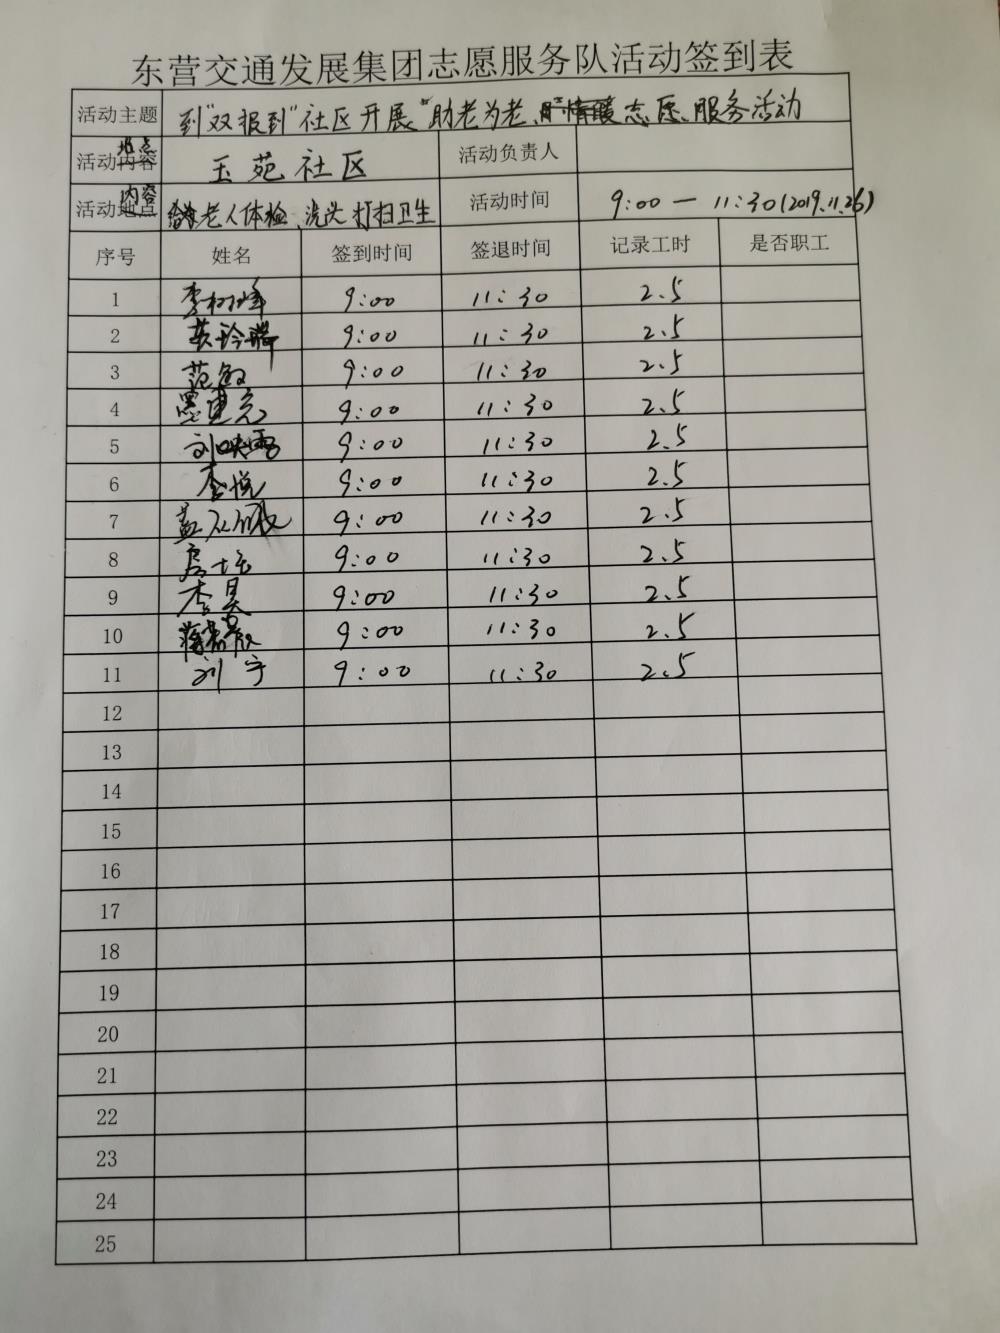 东营交通发展集团志愿服务队活动签到表
活动主题 到"双报到"社区开展"助老为老、情暖志愿服务活动
活动地点 玉苑社区 活动负责人
活动内容 给老人体检、洗头 打扫卫生 活动时间 9:00—11:30(2019.11.26)
序号 姓名 签到时间 签退时间 记录工时 是否职工
1 李树峰 9:00 11:30 2.5
2 9:00 11:30 2.5
3 范敏 9:00 11:30 2.5
4 9:00 11:30 2.5
5 刘映雪 9:00 11:30 2.5
6 李悦 9:00 11:30 2.5
7 9:00 11:30 2.5
8 9:00 11:30 2.5
9 李昊 9:00 11:30 2.5
10 9:00 11:30 2.5
11 刘宁 9:00 11:30 2.5
12
13
14
15
16
17
18
19
20
21
22
23
24
25